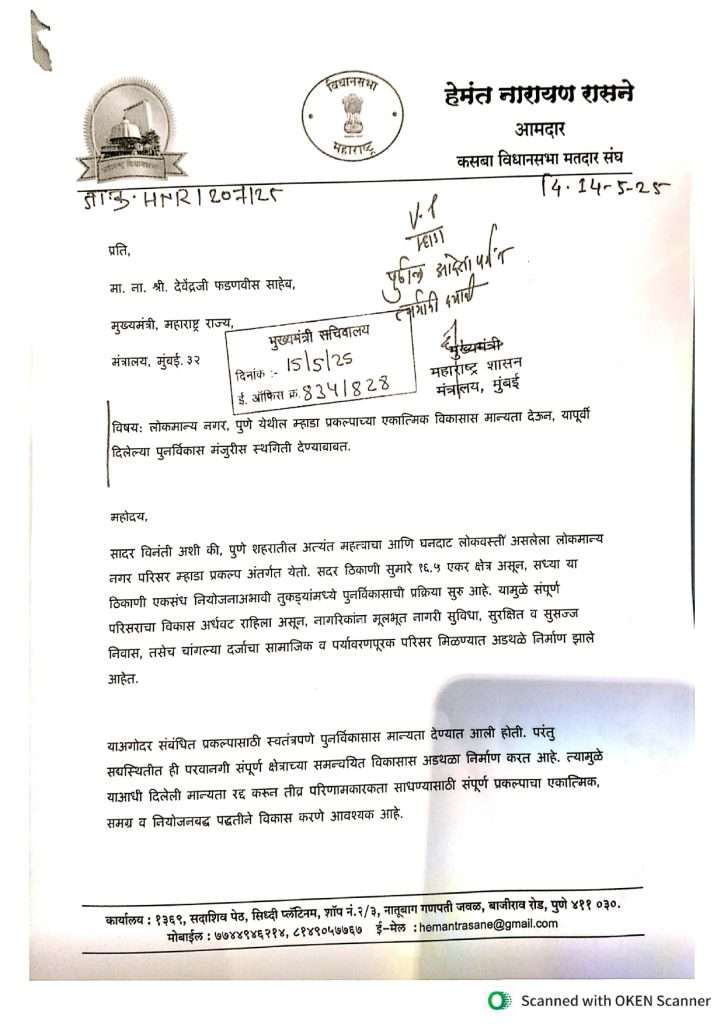 विधानसभा
महाराष्ट्र
हेमंत नारायण रासने
आमदार
कसबा विधानसभा मतदार संघ
जा.क्र. HNR/207/25
दि. 14-5-25
प्रति,
मा. ना. श्री. देवेंद्रजी फडणवीस साहेब,
मुख्यमंत्री, महाराष्ट्र राज्य,
मंत्रालय, मुंबई, ३२
म्हाडा
पुढील आदेशापर्यंत
स्थगिती द्यावी
मुख्यमंत्री
महाराष्ट्र शासन
मंत्रालय, मुंबई
मुख्यमंत्री सचिवालय
दिनांक :- 15/5/25
ई. ऑफिस क्र. 834/828
विषय: लोकमान्य नगर, पुणे येथील म्हाडा प्रकल्पाच्या एकात्मिक विकासास मान्यता देऊन, यापूर्वी
दिलेल्या पुनर्विकास मंजुरीस स्थगिती देण्याबाबत.
महोदय,
सादर विनंती अशी की, पुणे शहरातील अत्यंत महत्वाचा आणि घनदाट लोकवस्ती असलेला लोकमान्य
नगर परिसर म्हाडा प्रकल्प अंतर्गत येतो. सदर ठिकाणी सुमारे १६.५ एकर क्षेत्र असून, सध्या या
ठिकाणी एकसंध नियोजनाअभावी तुकड्यांमध्ये पुनर्विकासाची प्रक्रिया सुरु आहे. यामुळे संपूर्ण
परिसराचा विकास अर्धवट राहिला असून, नागरिकांना मूलभूत नागरी सुविधा, सुरक्षित व सुसज्ज
निवास, तसेच चांगल्या दर्जाचा सामाजिक व पर्यावरणपूरक परिसर मिळण्यात अडथळे निर्माण झाले
आहेत.
याअगोदर संबंधित प्रकल्पासाठी स्वतंत्रपणे पुनर्विकासास मान्यता देण्यात आली होती. परंतु
सद्यस्थितीत ही परवानगी संपूर्ण क्षेत्राच्या समन्वयित विकासास अडथळा निर्माण करत आहे. त्यामुळे
याआधी दिलेली मान्यता रद्द करून तीव्र परिणामकारकता साधण्यासाठी संपूर्ण प्रकल्पाचा एकात्मिक,
समग्र व नियोजनबद्ध पद्धतीने विकास करणे आवश्यक आहे.
कार्यालय : १३६९, सदाशिव पेठ, सिध्दी प्लॅटिनम, शॉप नं.२/३, नातूबाग गणपती जवळ, बाजीराव रोड, पुणे ४११ ०३०.
मोबाईल : ७७४४९४६२१४, ८१४९०५७७६७ ई-मेल : hemantrasane@gmail.com
Scanned with OKEN Scanner